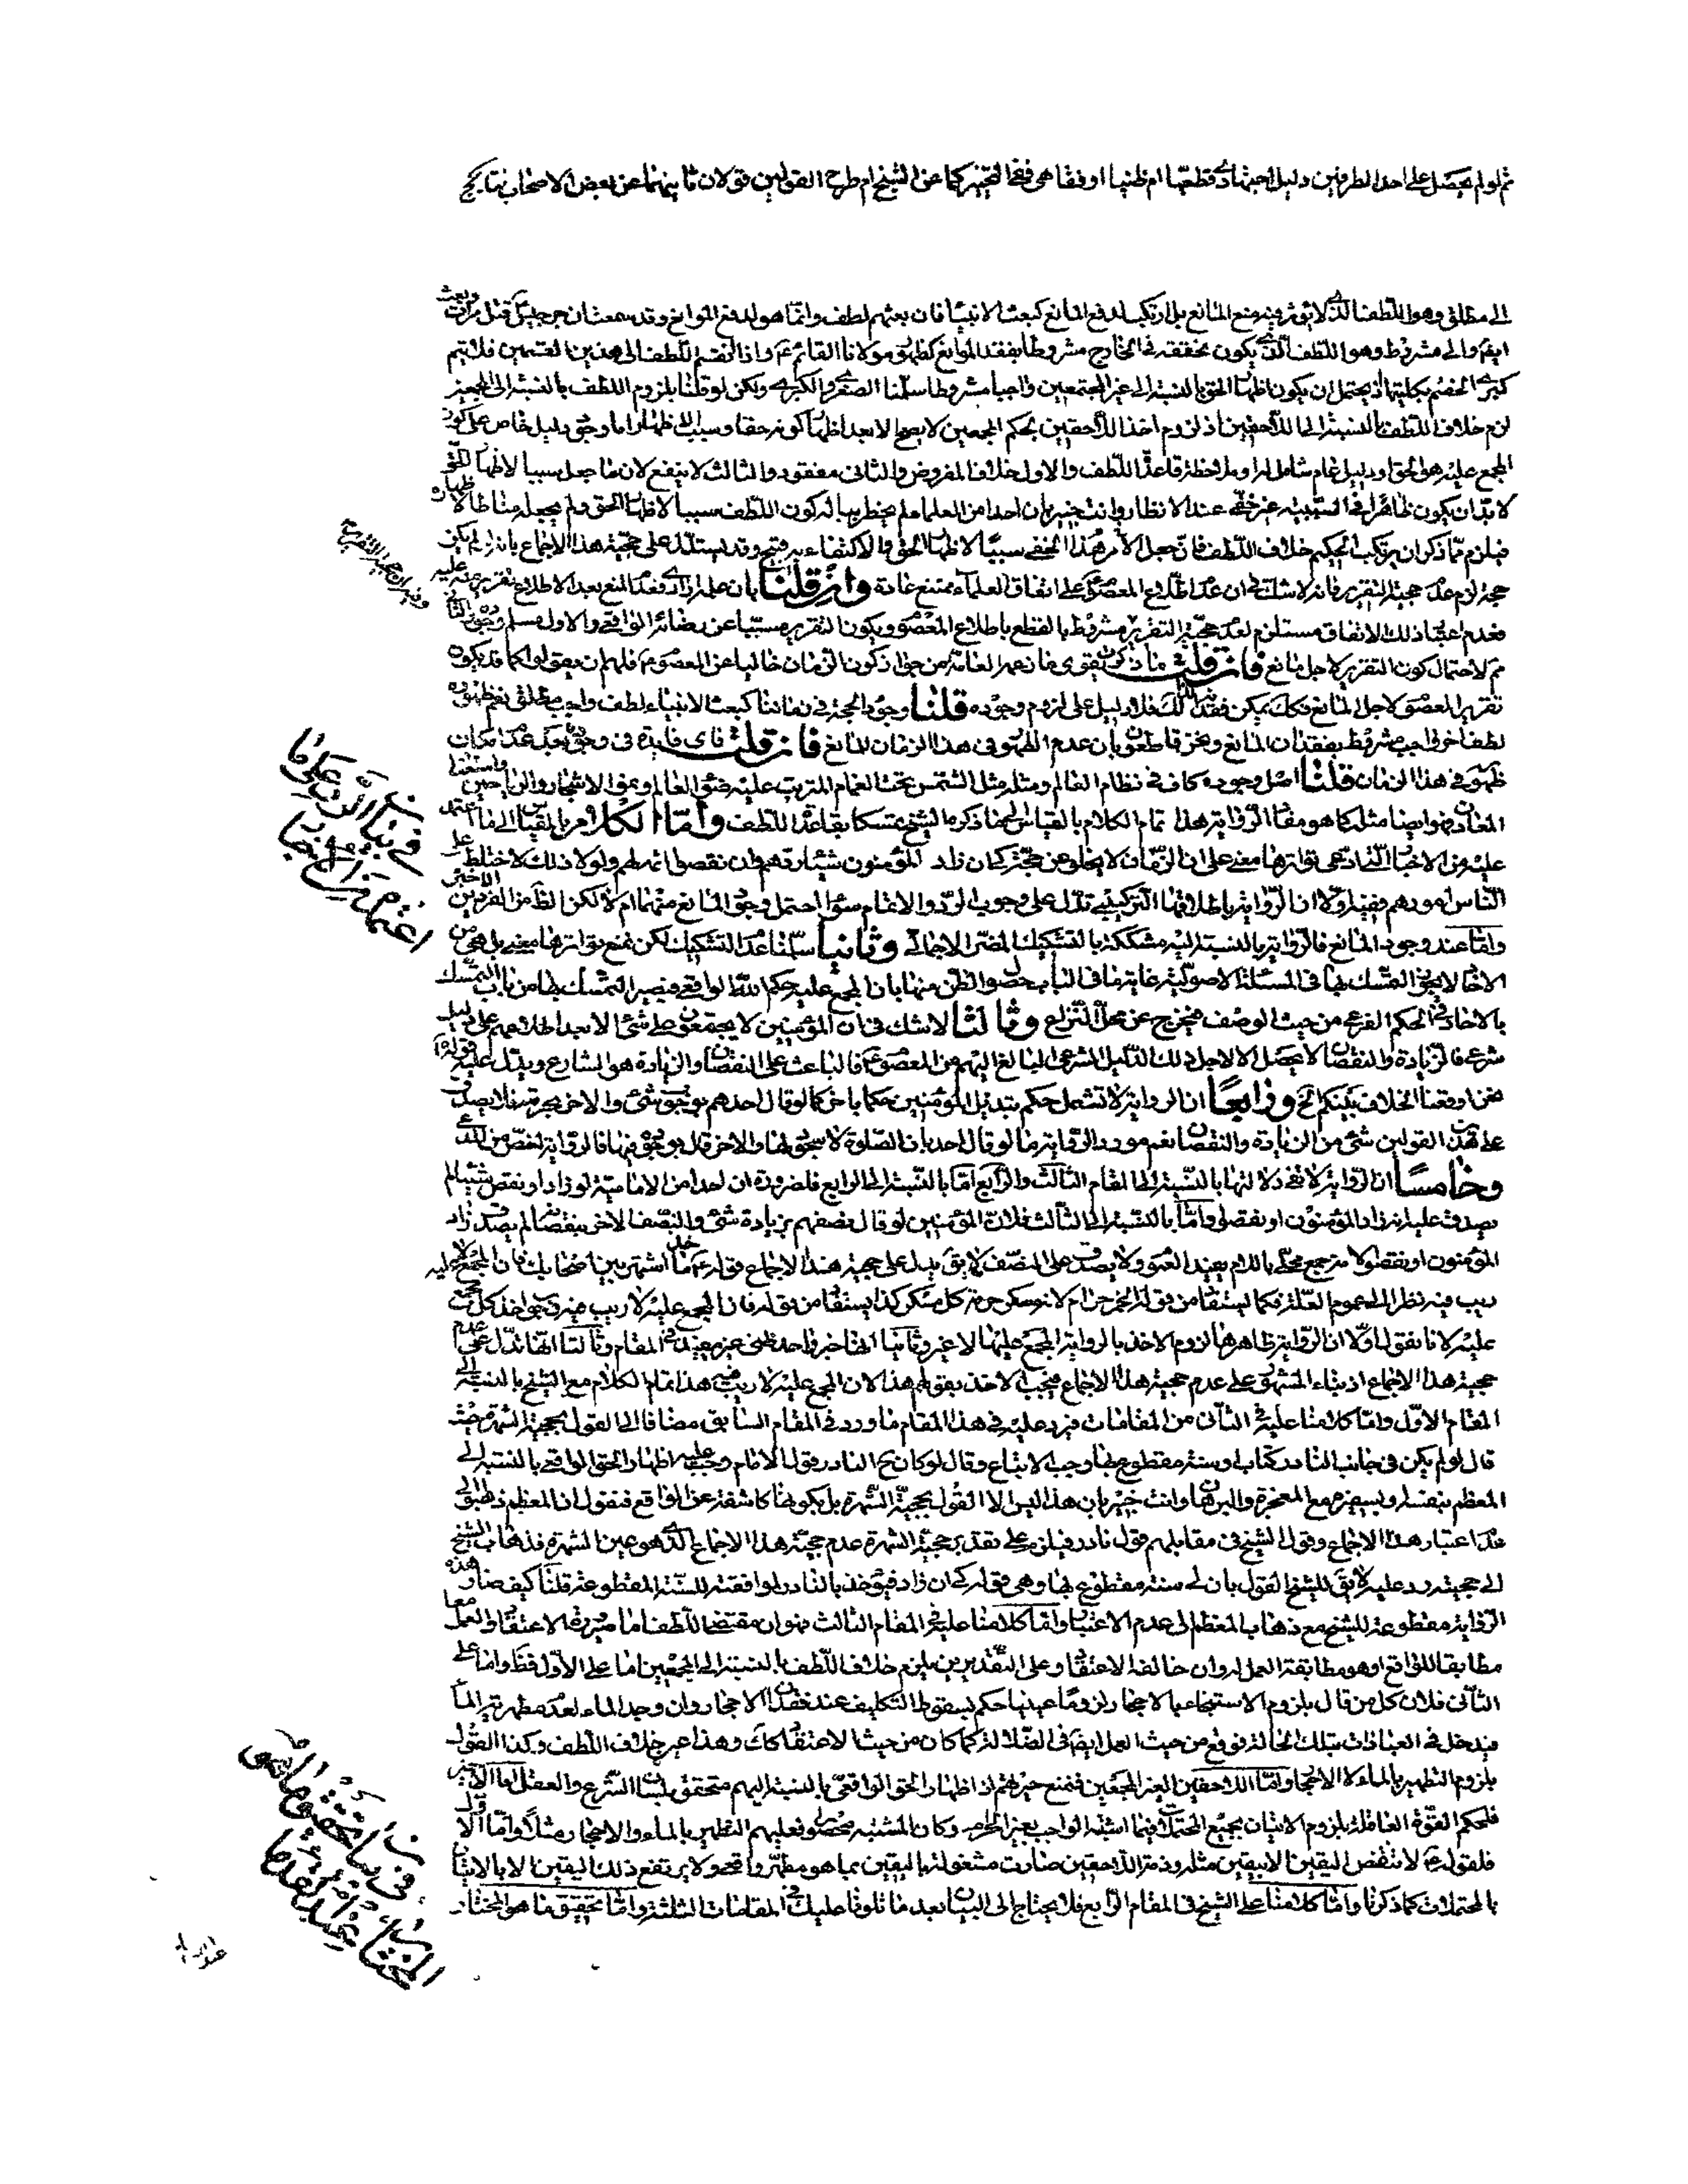 ثم لو لم يحصل على احد الطرفين دليل اجتهادى قطعيا ام ظنيا او فقاهى ففى التخيير كما عن الشيخ ام طرح القولين قولان ثانيهما عن بعض الاصحاب
الى مطلق وهو اللطف الذى لا يؤثر فيه منع المانع بل ارتكب لدفع المانع كبعث الانبيا فان بعثهم لطف وانما هو لدفع الموانع وقد سمعت ان جرجيس قتل مرات وبعث
ايضا والى مشروط وهو اللطف الذى يكون تحققه فى الخارج مشروطا بفقد الموانع كظهور مولانا القائم ع واذا انقسم اللطف الى هذين القسمين فلا يتم
كبرى الخصم بكليتها اذ يحتمل ان يكون اظهار الحق بالنسبة الى غير المجتمعين واجبا مشروطا سلمنا الصغرى والكبرى ولكن لو قلنا بلزوم اللطف بالنسبة الى المجمعين
لزم خلاف اللطف بالنسبة الى اللاحقين اذ لزوم اخذ اللاحقين بحكم المجمعين لا يصح الا بعد اظهار كونه حقا وسبب الاظهار اما وجود دليل خاص على كون
المجمع عليه هو الحق او دليل عام شامل له او ملاحظة قاعدة اللطف والاول خلاف المفروض والثانى مفقود والثالث لا ينفع لان ما جعل سببا لاظهار الحق
لا بد ان يكون ظاهرا فى السببية غير خفى عند الانظار وانت خبير بان احدا من العلماء لم يخطر بباله كون اللطف سببا لاظهار الحق ولم يجعله مناطا لاظهاره
فيلزم مما ذكر ان يرتكب الحكيم خلاف اللطف فان جعل الامر هذا الخفى سببا لاظهار الحق والاكتفاء به قبيح وقد يستدل على حجية هذا الاجماع بانه لو لم يكن
حجة لزم عدم حجية التقرير فانه لا شك فى ان عدم اطلاع المعصوم على اتفاق العلماء ممتنع عادة وان قلنا بان علمه ارادى فعدم المنع بعد الاطلاع تقرير منه عليه
فعدم اعتبار ذلك الاتفاق مستلزم لعدم حجية التقرير مشروط بالقطع باطلاع المعصوم ويكون التقرير مسببا عن رضائه الواقعى والاول مسلم وجوده والثانى
مم لاحتمال كون التقرير لاجل مانع فان قلت ما ذكرت يقوى ما زعمه العامة من جواز كون الزمان خاليا عن المعصوم فلهم ان يقولوا كما قد يكون
تقرير المعصوم لاجل المانع فكك يمكن فقد ذلك فلا دليل على لزوم وجوده قلنا وجود الحجة فى زماننا كبعث الانبياء لطف واجب مطلق نعم ظهوره
لطف اخر واجب مشروط بفقدان المانع ونحن قاطعون بان عدم الظهور فى هذا الزمان للمانع فان قلت فاى فايدة فى وجوده بعد عدم امكان
ظهوره فى هذا الزمان قلنا اصل وجوده كاف فى نظام العالم ومثله مثل الشمس تحت الغمام المترتب عليه ضوء العالم ونمو الاشجار والرياحين واستعداد
المعادن وايضا مثل كما هو مفاد الرواية هذا تمام الكلام بالقياس الى ما ذكره الشيخ متمسكا بقاعدة اللطف واما الكلام بالقياس الى ما اعتمد
عليه من الاخبار التى ادعى تواترها معنى على ان الزمان لا يخلو عن حجة كى ان زاد المؤمنون شيئا ردهم وان نقصوا اتمه لهم ولولا ذلك لاختلط على
الناس امورهم ففيه اولا ان الرواية باطلاقها التركيبى تدل على وجوب الرد والاتمام سواء احتمل وجود المانع منهما ام لا لكن الظ من الفردين الاخير
واما عند وجود المانع فالرواية بالنسبة اليه مشككة بالتشكيك المضر الاجمالى وثانيا سلمنا عدم التشكيك لكن نمنع تواترها معنى بل هى من
الاحاد لا يجوز التمسك بها فى المسئلة الاصولية غاية ما فى الباب حصول الظن منها بان المجمع عليه حكم الله الواقعى فيصير التمسك بها من باب التمسك
بالاحاد فى الحكم الفرعى من حيث الوصف فيخرج عن محل النزاع وثالثا لا شك فى ان المؤمنين لا يجتمعون على شئ الا بعد اطلاعهم على دليل
شرعى فالزيادة والنقصان لا يحصل الا لاجل ذلك الدليل الشرعى البالغ اليهم من المعصوم ع فالباعث على النقصان والزيادة هو الشارع ويدل عليه قوله ع
نحن اوقعنا الخلاف بينكم الخ ورابعا ان الرواية لا تشمل حكم تبديل المؤمنين حكما باخر كما لو قال احدهم بوجوب شئ والاخر بحرمته فلا يصدق
على هذين القولين شئ من الزيادة والنقصان نعم مورد الرواية ما لو قال احد بان الصلوة لا سجود لها والاخر قال بوجوده فيها فالرواية اخص من المدعى
وخامسا ان الرواية لا تفى دلالتها بالنسبة الى المقام الثالث والرابع اما بالنسبة الى الرابع فلضرورة ان احدا من الامامية لو زاد او نقص شيئا لم
يصدق عليه انه زاد المؤمنون او نقصوا واما بالنسبة الى الثالث فلان المؤمنين لو قال نصفهم بزيادة شئ والنصف الاخر بنقصانه لم يصدق زاد
المؤمنون او نقصوا لانه جمع محلى باللام يفيد العموم ولا يصدق على النصف لا يق يدل على حجية هذا الاجماع قوله ع خذ ما اشتهر بين اصحابك فان المجمع عليه لا
ريب فيه نظرا الى عموم العلة فكما يستفاد من قوله الخمر حرام لانه مسكر حرمة كل مسكر كذا يستفاد من قوله فان المجمع عليه لا ريب فيه وجوب اخذ كل مجمع
عليه لانا نقول اولا ان الرواية ظاهرها لزوم الاخذ بالرواية المجمع عليها لا غير وثانيا انها خبر واحد ظنى غير مفيد فى المقام وثالثا انها تدل على عدم
حجية هذا الاجماع اذ بناء المشهور على عدم حجية هذا الاجماع فيجب الاخذ بقولهم هذا لان المجمع عليه لا ريب فيه هذا تمام الكلام مع الشيخ بالنسبة الى
المقام الاول واما كلامنا عليه فى الثانى من المقامات فيرد عليه فى هذا المقام ما ورد فى المقام السابق مضافا الى القول بحجية الشهرة حيث
قال لو لم يكن فى جانب النادر كتاب او سنة مقطوع بها وجب الاتباع وقال لو كان مع النادر قول الامام وجب عليه اظهار الحق الواقعى بالنسبة الى
المعظم بنفسه او بسفيره مع المعجزة والبرهان وانت خبير بان هذا ليس الا القول بحجية الشهرة بل بكونها كاشفة عن الواقع فنقول ان المعظم ذهبوا الى
عدم اعتبار هذا الاجماع وقول الشيخ فى مقابلهم قول نادر فيلزم على تقدير حجية الشهرة عدم حجية هذا الاجماع الذى هو عين الشهرة فذهاب الشيخ
الى حجيته رد عليه لا يق للشيخ القول بان لى سنة مقطوع بها وهى قوله كى ان زاد فيؤخذ بالنادر لموافقته للسنة المقطوعة قلنا كيف صار هذه
الرواية مقطوعة للشيخ مع ذهاب المعظم الى عدم الاعتبار واما كلامنا عليه فى المقام الثالث فهو ان مقتضى اللطف اما صيرورة الاعتقاد والعمل معا
مطابقا للواقع او هو مطابقة العمل له وان خالفه الاعتقاد وعلى التقديرين يلزم خلاف اللطف بالنسبة الى المجمعين اما على الاول فظ واما على
الثانى فلان كل من قال بلزوم الاستنجاء بالاحجار لزوما عينيا حكم بسقوط التكليف عند فقدان الاحجار وان وجد الماء لعدم مطهرية الماء
فيدخل فى العبادات بتلك الحالة فوقع من حيث العمل ايضا فى الضلالة كما كان من حيث الاعتقاد كك وهذا عين خلاف اللطف وكذا القول
بلزوم التطهير بالماء لا الاحجار واما اللاحقين الغير المجمعين فنمنع حيرتهم اذ اظهار الحق الواقعى بالنسبة اليهم متحقق بلسان الشرع والعقل اما الاخير
فلحكم القوة العاقلة بلزوم الاتيان بجميع المحتملات فيما اشتبه الواجب بغير الحرام وكان المشتبه محصورا فعليهم التطهير بالماء والاحجار مثلا واما الاول
فلقوله ع لا تنقض اليقين الا بيقين مثله وذمة اللاحقين صارت مشغولة باليقين بما هو مطهر واقعى ولا يرتفع ذلك اليقين الا بالاتيان
بالمحتملات كما ذكرنا واما كلامنا على الشيخ فى المقام الرابع فلا يحتاج الى البيان بعد ما تلونا عليك فى المقامات الثلثة واما تحقيق ما هو المختار
فى بيان الرد على ما
اعتمد من الاخبار
فى بيان تحقيق ما هو
المختار